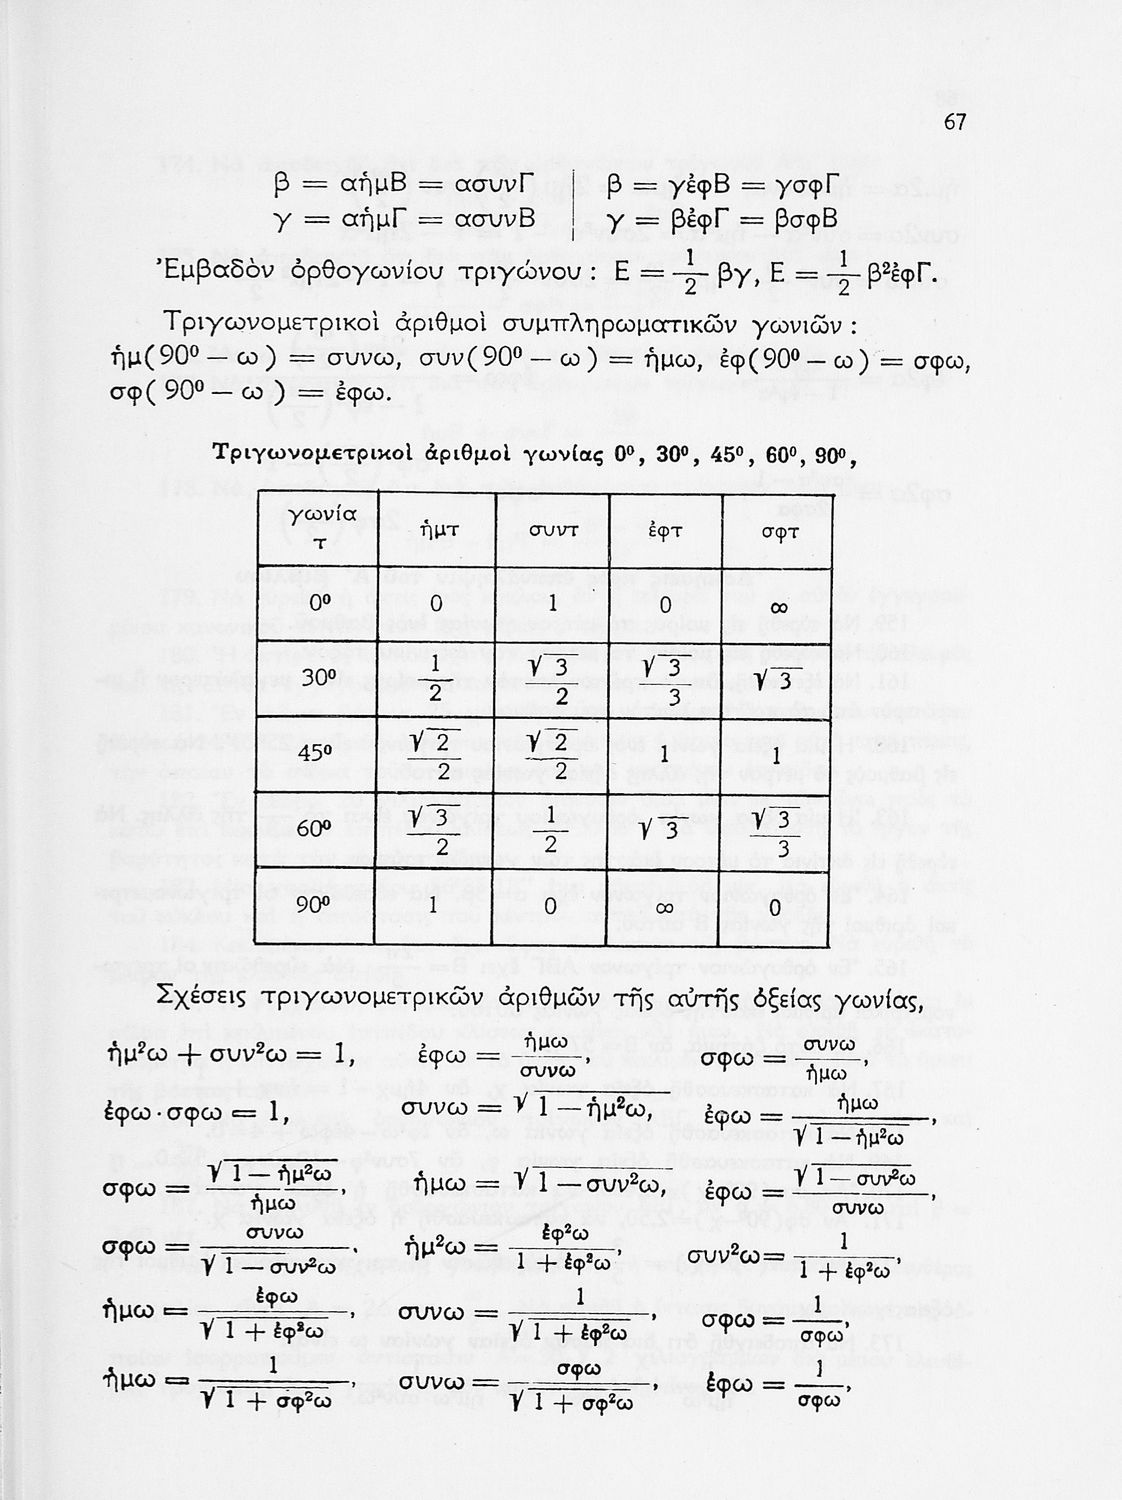 67
β = αἡμΒ = ασυνΓ | β = γἐφΒ = γσφΓ
γ = αἡμΓ = ασυνΒ | γ = βἐφΓ = βσφΒ
Ἐμβαδὸν ὀρθογωνίου τριγώνου : Ε = 1/2 βγ, Ε = 1/2 β²ἐφΓ.
Τριγωνομετρικοὶ ἀριθμοὶ συμπληρωματικῶν γωνιῶν :
ἡμ(90⁰ — ω) = συνω, συν(90⁰ — ω) = ἡμω, ἐφ(90⁰ — ω) = σφω,
σφ(90⁰ — ω) = ἐφω.
Τριγωνομετρικοὶ ἀριθμοὶ γωνίας 0⁰, 30⁰, 45⁰, 60⁰, 90⁰,
γωνία τ | ἡμτ | συντ | ἐφτ | σφτ
0⁰ | 0 | 1 | 0 | ∞
30⁰ | 1/2 | √3/2 | √3/3 | √3
45⁰ | √2/2 | √2/2 | 1 | 1
60⁰ | √3/2 | 1/2 | √3 | √3/3
90⁰ | 1 | 0 | ∞ | 0
Σχέσεις τριγωνομετρικῶν ἀριθμῶν τῆς αὐτῆς ὀξείας γωνίας,
ἡμ²ω + συν²ω = 1, ἐφω = ἡμω/συνω, σφω = συνω/ἡμω,
ἐφω·σφω = 1, συνω = √(1 — ἡμ²ω), ἐφω = ἡμω/√(1 — ἡμ²ω),
σφω = √(1 — ἡμ²ω)/ἡμω, ἡμω = √(1 — συν²ω), ἐφω = √(1 — συν²ω)/συνω,
σφω = συνω/√(1 — συν²ω). ἡμ²ω = ἐφ²ω/(1 + ἐφ²ω), συν²ω = 1/(1 + ἐφ²ω),
ἡμω = ἐφω/√(1 + ἐφ²ω), συνω = 1/√(1 + ἐφ²ω), σφω = 1/σφω,
ἡμω = 1/√(1 + σφ²ω), συνω = σφω/√(1 + σφ²ω), ἐφω = 1/σφω,